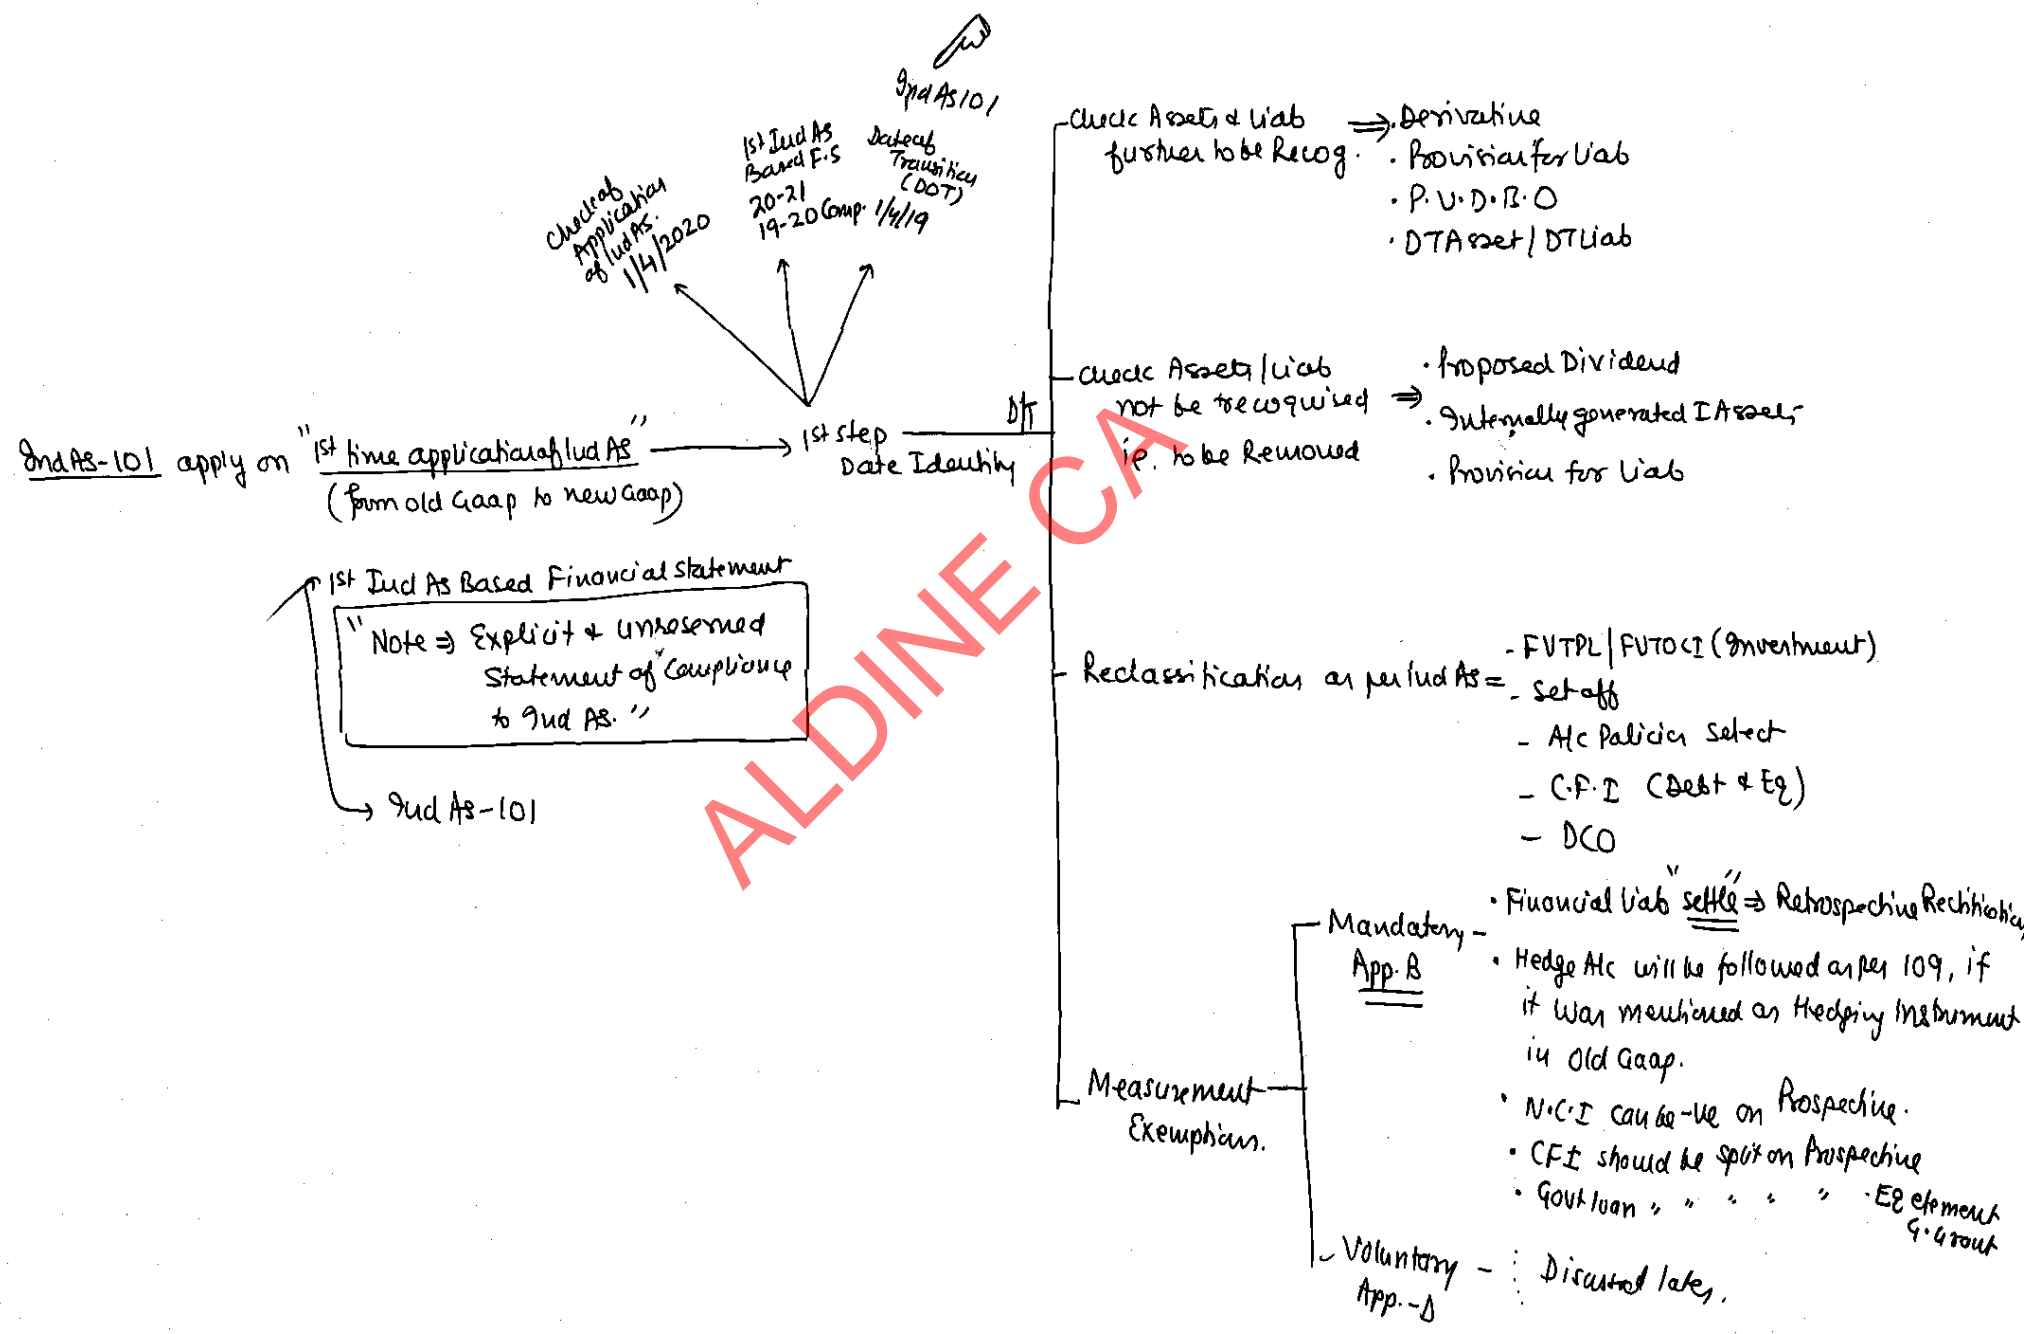 Ind AS 101
Check of
Application
of Ind AS.
1/4/2020
1st Ind AS
Based F.S
20-21
19-20 Comp.
Date of
Transition
(DOT)
1/4/19
Ind AS-101 apply on "1st time application of Ind AS"
(from old Gaap to new Gaap)
1st Step
Date Identity
1st Ind AS Based Financial Statement
"Note ⇒ Explicit & Unreserved
Statement of "Compliance
to Ind AS."
Ind AS-101
Check Assets & Liab
further to be Recog.
⇒ . Derivative
. Provision for Liab
. P.U.D.B.O
. DT Asset / DT Liab
Check Assets / Liab
not be recognised
ie. to be Removed
⇒ . Proposed Dividend
. Internally generated I Assets
. Provision for Liab
Reclassification as per Ind AS =
- FVTPL / FVTOCI (Investment)
- Set off
- A/c Policies Select
- C.F.I (Debt & Eq)
- DCO
Measurement
Exemptions.
Mandatory -
App. B
. Financial Liab "settle" ⇒ Retrospective Rectification
. Hedge A/c will be followed as per 109, if
it was mentioned as Hedging Instrument
in Old Gaap.
. N.C.I can be -ve on Prospective.
. CFI should be split on Prospective
. Govt loan " " " " " . Eq element
G. Grant
- Voluntary -
App. - D
Discussed later.
ALDINE CA